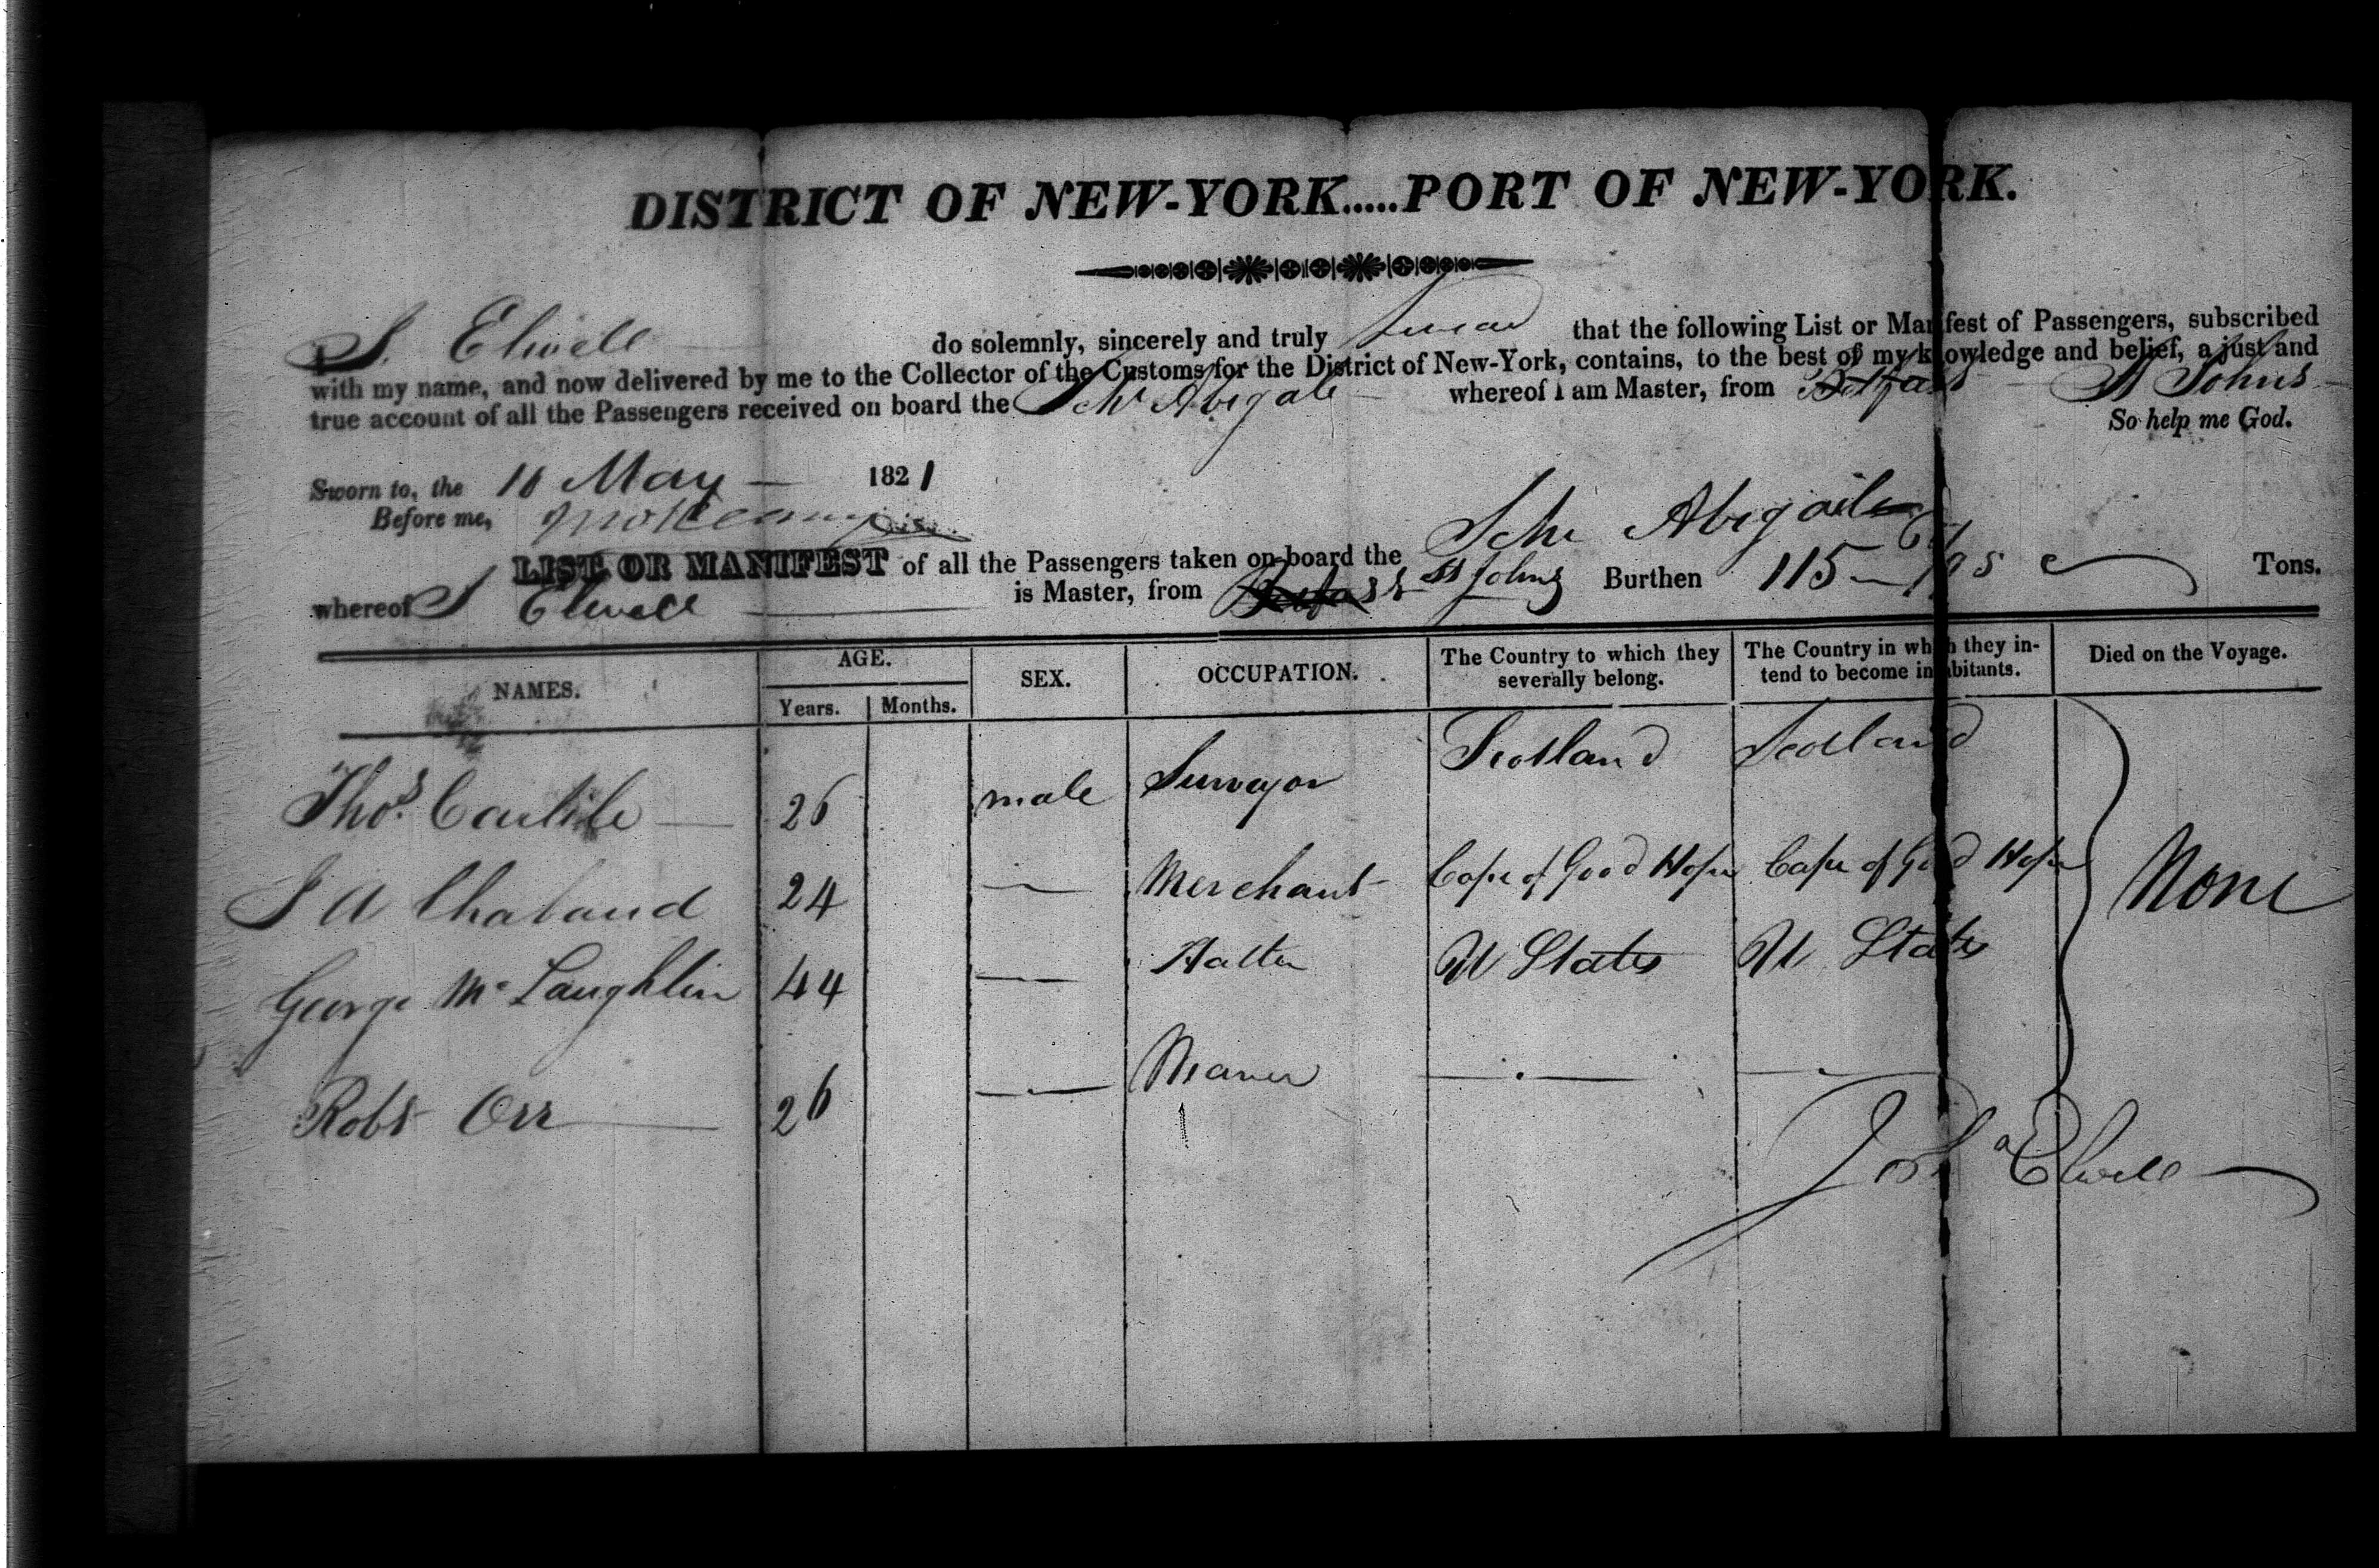 DISTRICT OF NEW-YORK.....PORT OF NEW-YORK.
I, S. Elwell do solemnly, sincerely and truly swear that the following List or Manifest of Passengers, subscribed
with my name, and now delivered by me to the Collector of the Customs for the District of New-York, contains, to the best of my knowledge and belief, a just and
true account of all the Passengers received on board the Schr Abigale whereof I am Master, from Belfast St Johns
So help me God.
Sworn to, the 16 May 1821
Before me,
LIST OR MANIFEST of all the Passengers taken on board the Schr Abigail
whereof S Elwell is Master, from Belfast St Johns Burthen 115 /95 Tons.
NAMES. AGE. SEX. OCCUPATION. The Country to which they severally belong. The Country in which they intend to become inhabitants. Died on the Voyage.
Years. Months.
Thos. Carlile 26 male Surveyor Scotland Scotland
J A Chabaud 24 — Merchant Cape of Good Hope Cape of Good Hope None
George Mc Laughlin 44 — Hatter U States U States
Robt Orr 26 — Weaver — —
Elwell